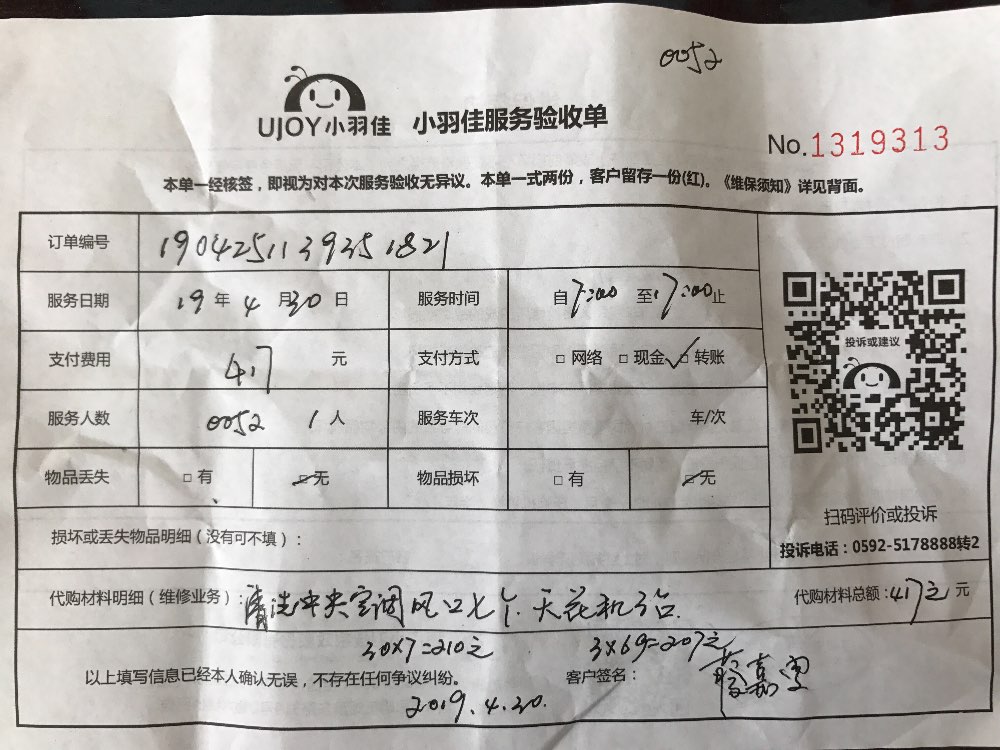 0052
UJOY小羽佳 小羽佳服务验收单
No.1319313
本单一经核签，即视为对本次服务验收无异议。本单一式两份，客户留存一份(红)。《维保须知》详见背面。
订单编号 1904251139351821
服务日期 19年4月30日 服务时间 自7:00至17:00止
支付费用 417元 支付方式 □网络 □现金 ✓□转账
服务人数 0052 1人 服务车次 车/次
物品丢失 □有 □无 物品损坏 □有 □无
投诉或建议
扫码评价或投诉
投诉电话：0592-5178888转2
损坏或丢失物品明细（没有可不填）：
代购材料明细（维修业务）：清洗中央空调风口七个.天花机3台. 代购材料总额：417元元
30x7=210元 3x69=207元
以上填写信息已经本人确认无误，不存在任何争议纠纷。 客户签名：
2019.4.30.